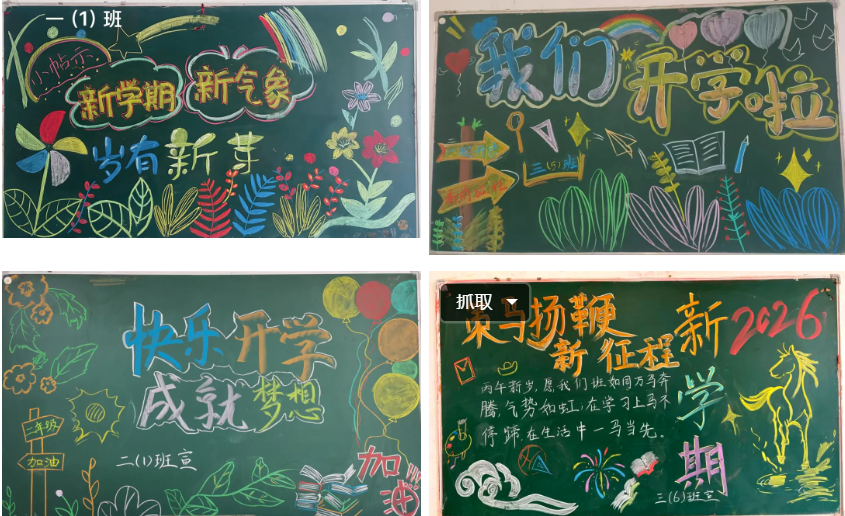 一（1）班
小帖示
新学期
新气象
岁有新芽
我们
开学啦
三(5)班
快乐开学
成就梦想
二年级
加油
二(1)班宣
加油
抓取
策马扬鞭
新征程
新学期
2026
丙午新岁,愿我们班如同万马奔
腾,气势如虹,在学习上马不
停蹄,在生活中一马当先。
三(6)班宣